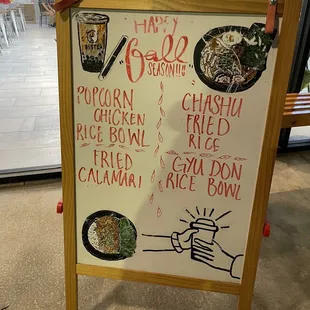 HAPPY
"Fall
SEASON!!!"
POPCORN
CHICKEN
RICE BOWL
FRIED
CALAMARI
CHASHU
FRIED
RICE
GYU DON
RICE BOWL